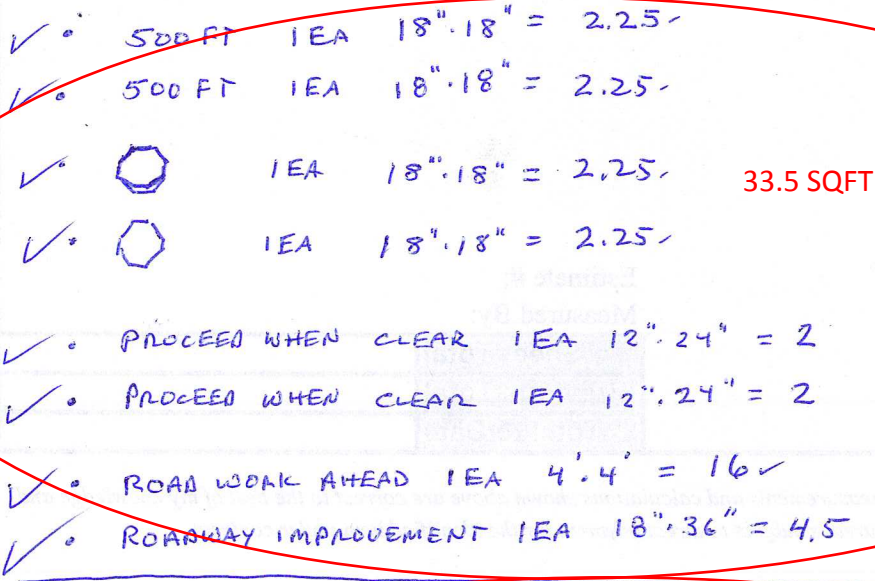 ✓ • 500 FT 1 EA 18"·18" = 2.25✓
✓ • 500 FT 1 EA 18"·18" = 2.25✓
✓ • 1 EA 18"·18" = 2.25✓
33.5 SQFT
✓ • 1 EA 18"·18" = 2.25✓
Estimate #:
Measured By:
✓ • PROCEED WHEN CLEAR 1 EA 12"·24" = 2
✓ • PROCEED WHEN CLEAR 1 EA 12"·24" = 2
✓ • ROAD WORK AHEAD 1 EA 4'·4' = 16✓
✓ • ROADWAY IMPROVEMENT 1 EA 18"·36" = 4.5